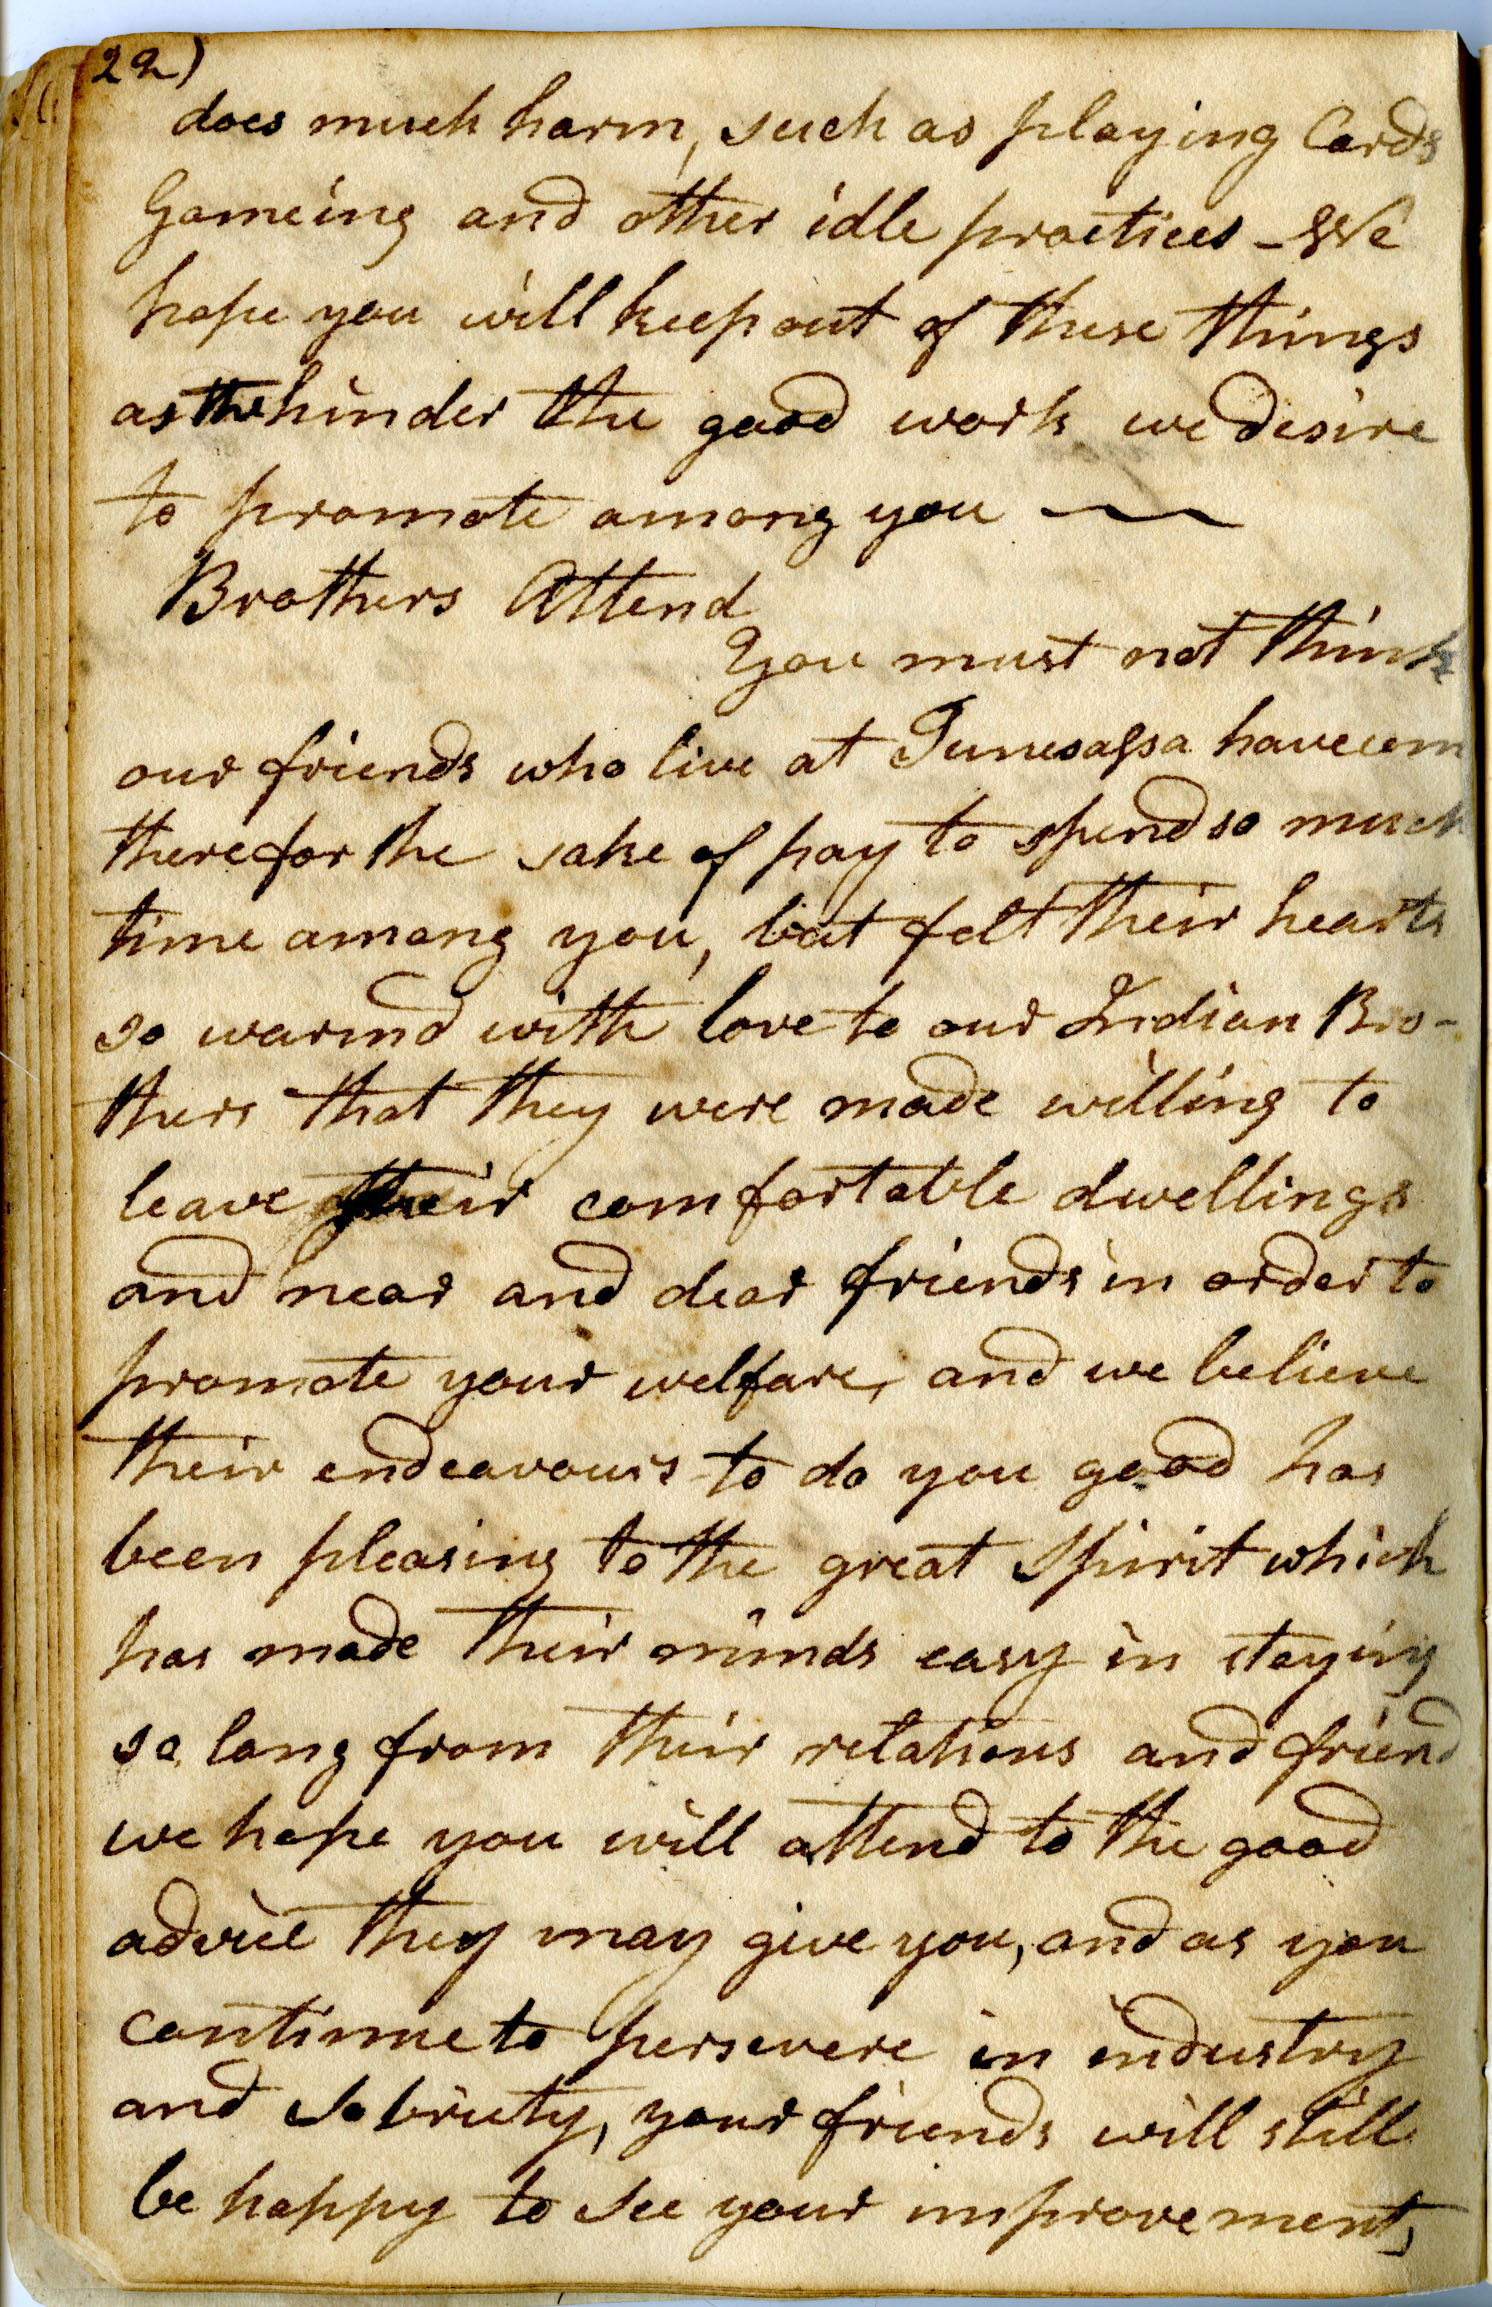 22)
does much harm, such as playing Cards
Gameing and other idle practices - We
hope you will keep out of these things
as the hinder the good work we desire
to promote among you
Brothers Attend
You must not think
our friends who live at Tunesassa have com
there for the sake of pay to spend so much
time among you, but felt their hearts
so warmd with love to our Indian Bro-
thers that they were made willing to
leave their comfortable dwellings
and near and dear friends in order to
promote your welfare, and we believe
their endeavours to do you good has
been pleasing to the great Spirit which
has made their minds easy in staying
so long from their relations and friend
we hope you will attend to the good
advice they may give you, and as you
continue to persevere in industry
and Sobriety, your friends will still
be happy to see your improvement,